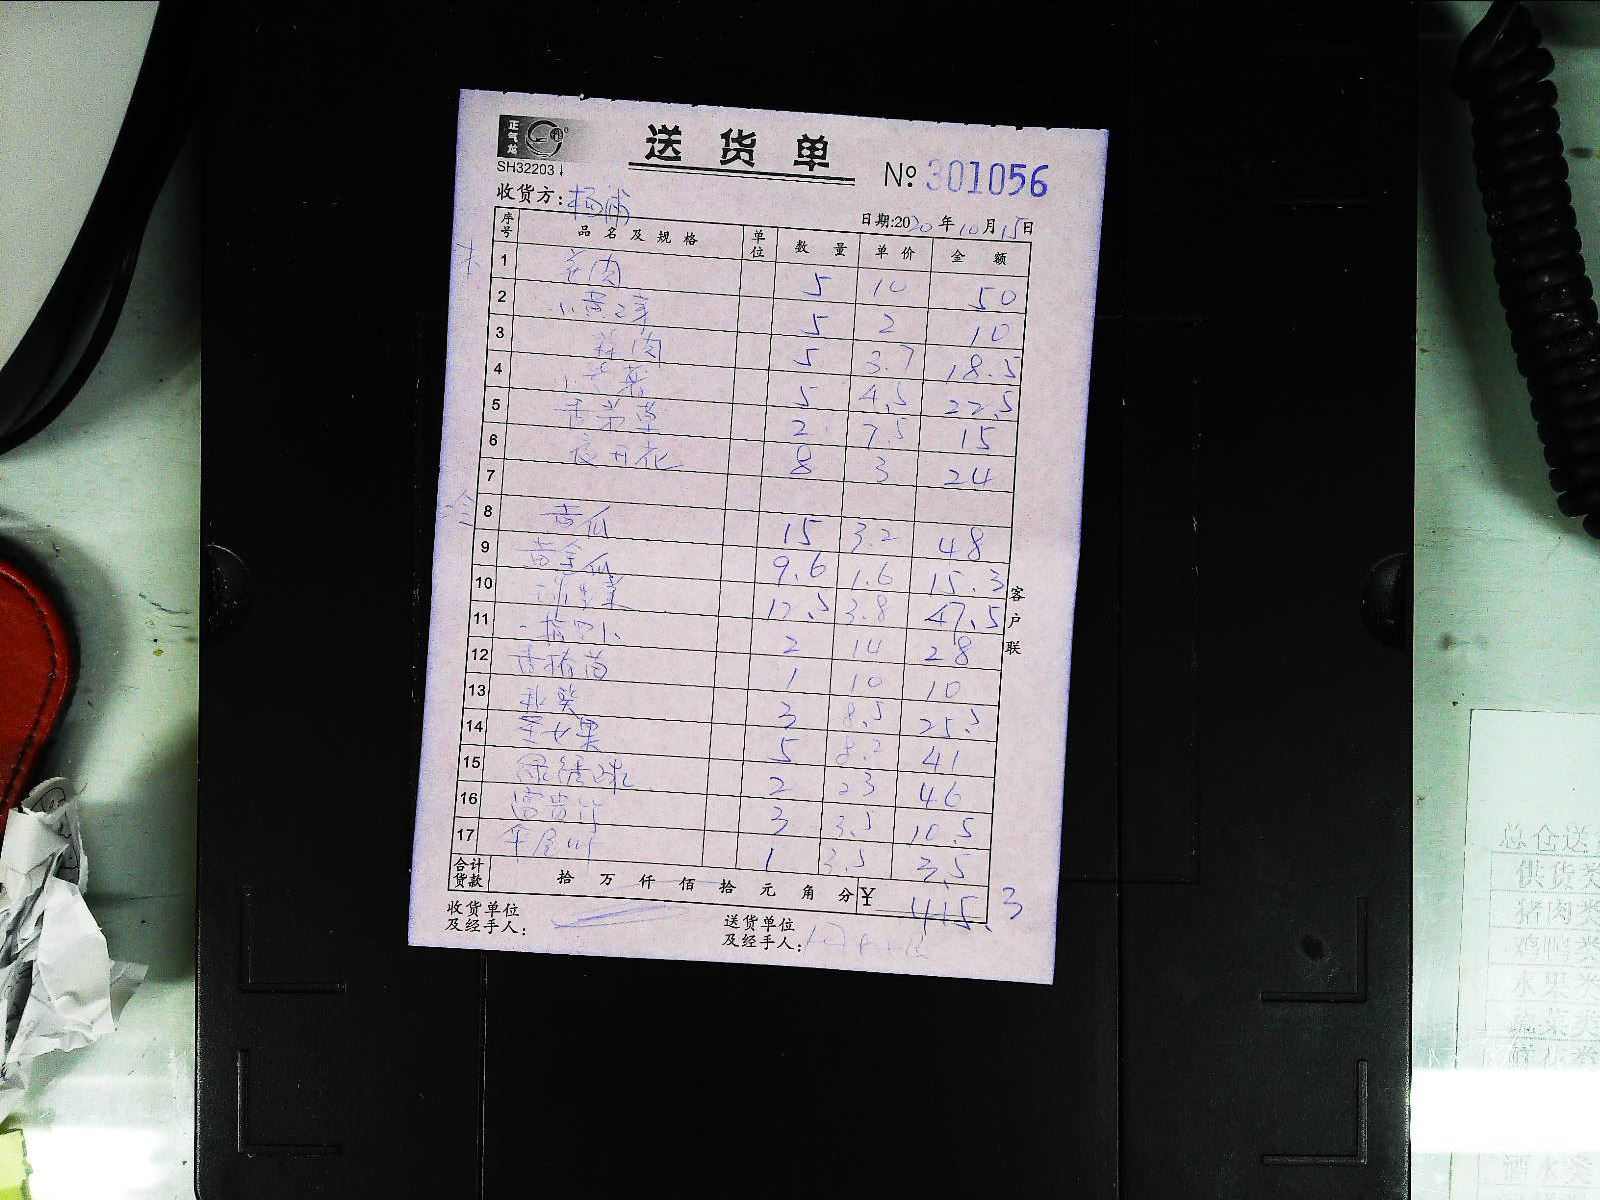 正气站
送货单
SH32203
№ 301056
收货方: 杨浦
日期:2020年10月15日
序号 品名及规格 单位 数量 单价 金额
1 羊肉 5 10 50
2 5 2 10
3 蒜肉 5 3.7 18.5
4 5 4.5 22.5
5 香茅草 2 7.5 15
6 夜开花 8 3 24
7
8 苦瓜 15 3.2 48
9 黄金瓜 9.6 1.6 15.3
10 球生菜 12.5 3.8 47.5
11 2 14 28
12 香椿苗 1 10 10
13 秋葵 3 8.5 25.5
14 圣女果 5 8.2 41
15 2 23 46
16 富贵竹 3 3.5 10.5
17 1 3.5 3.5
合计货款 拾 万 仟 佰 拾 元 角 分 ¥ 415.3
客户联
收货单位及经手人:
送货单位及经手人:
总仓送
供货类
猪肉类
鸡鸭类
水果类
蔬菜类
酒水类